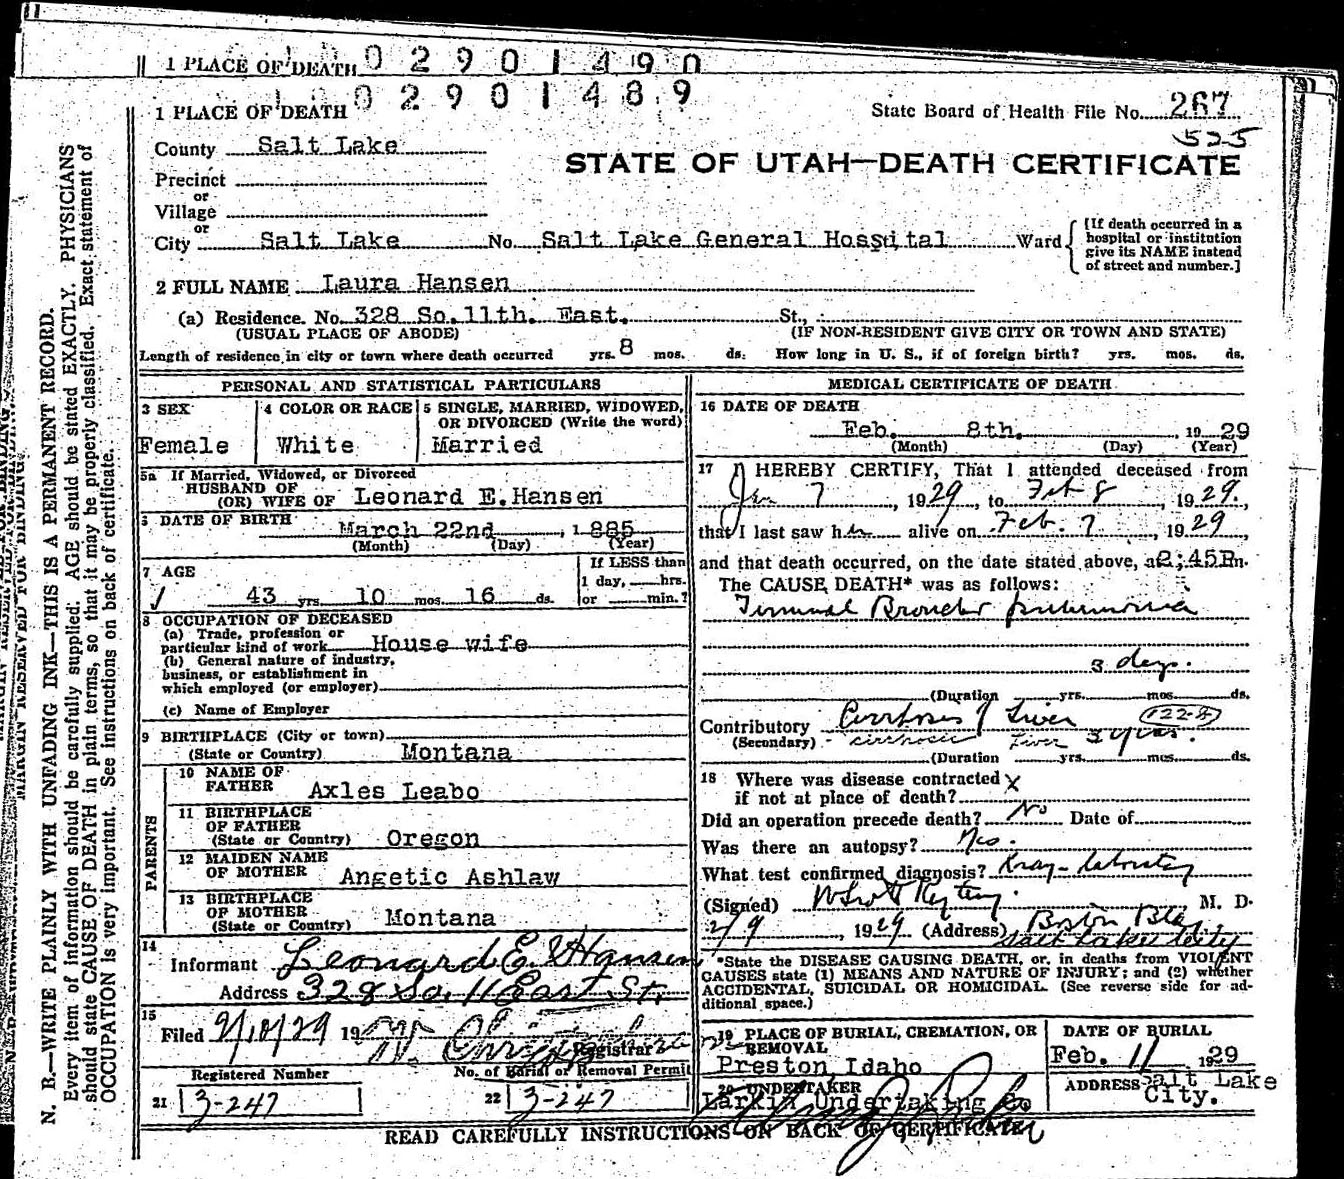 1 PLACE OF DEATH 0 2 9 0 1 4 9 0
0 2 9 0 1 4 8 9
1 PLACE OF DEATH
State Board of Health File No. 267
525
County Salt Lake
STATE OF UTAH—DEATH CERTIFICATE
Precinct
or
Village
or
City Salt Lake No. Salt Lake General Hosstital Ward
[If death occurred in a
hospital or institution
give its NAME instead
of street and number.]
2 FULL NAME Laura Hansen
(a) Residence. No. 328 So. 11th. East. St.,
(USUAL PLACE OF ABODE) (IF NON-RESIDENT GIVE CITY OR TOWN AND STATE)
Length of residence in city or town where death occurred yrs. 8 mos. ds. How long in U. S., if of foreign birth? yrs. mos. ds.
PERSONAL AND STATISTICAL PARTICULARS
3 SEX
Female
4 COLOR OR RACE
White
5 SINGLE, MARRIED, WIDOWED,
OR DIVORCED (Write the word)
Married
5a If Married, Widowed, or Divorced
HUSBAND OF
(OR) WIFE OF Leonard E. Hansen
6 DATE OF BIRTH March 22nd, 1885
(Month) (Day) (Year)
7 AGE
43 yrs. 10 mos. 16 ds.
If LESS than
1 day, hrs.
or min.?
8 OCCUPATION OF DECEASED
(a) Trade, profession or
particular kind of work House wife
(b) General nature of industry,
business, or establishment in
which employed (or employer)
(c) Name of Employer
9 BIRTHPLACE (City or town)
(State or Country) Montana
PARENTS
10 NAME OF
FATHER Axles Leabo
11 BIRTHPLACE
OF FATHER
(State or Country) Oregon
12 MAIDEN NAME
OF MOTHER Angetic Ashlaw
13 BIRTHPLACE
OF MOTHER
(State or Country) Montana
14
Informant Leonard E. Hansen
Address 328 So. 11 East St.
15
Filed 2/10/29 19
Registrar
Registered Number
21 3-247
No. of Burial or Removal Permit
22 3-247
MEDICAL CERTIFICATE OF DEATH
16 DATE OF DEATH
Feb. 8th. 1929
(Month) (Day) (Year)
17 I HEREBY CERTIFY, That I attended deceased from
Jan 7, 1929, to Feb 8, 1929.
that I last saw her alive on Feb. 7, 1929
and that death occurred, on the date stated above, at 2:45P m.
The CAUSE DEATH* was as follows:
Terminal Broncho pneumonia
3 days.
(Duration yrs. mos. ds.
Contributory Cirrhosis of Liver 122-B
(Secondary) - cirrhosis Liver 3 years.
(Duration yrs. mos. ds.
18 Where was disease contracted X
if not at place of death?
Did an operation precede death? No Date of
Was there an autopsy? No.
What test confirmed diagnosis? Xray - Laboratory
(Signed) M. D.
2/9, 1929 (Address) Boston Bldg
Salt Lake City
*State the DISEASE CAUSING DEATH, or, in deaths from VIOLENT
CAUSES state (1) MEANS AND NATURE OF INJURY; and (2) whether
ACCIDENTAL, SUICIDAL OR HOMICIDAL. (See reverse side for ad-
ditional space.)
19 PLACE OF BURIAL, CREMATION, OR
REMOVAL
Preston Idaho
DATE OF BURIAL
Feb. 11 1929
20 UNDERTAKER
Larkin Undertaking Co
ADDRESS Salt Lake
City.
READ CAREFULLY INSTRUCTIONS ON BACK OF CERTIFICATE
N. B.—WRITE PLAINLY WITH UNFADING INK—THIS IS A PERMANENT RECORD.
Every item of information should be carefully supplied. AGE should be stated EXACTLY. PHYSICIANS
should state CAUSE OF DEATH in plain terms, so that it may be properly classified. Exact statement of
OCCUPATION is very important. See instructions on back of certificate.
MARGIN RESERVED FOR BINDING